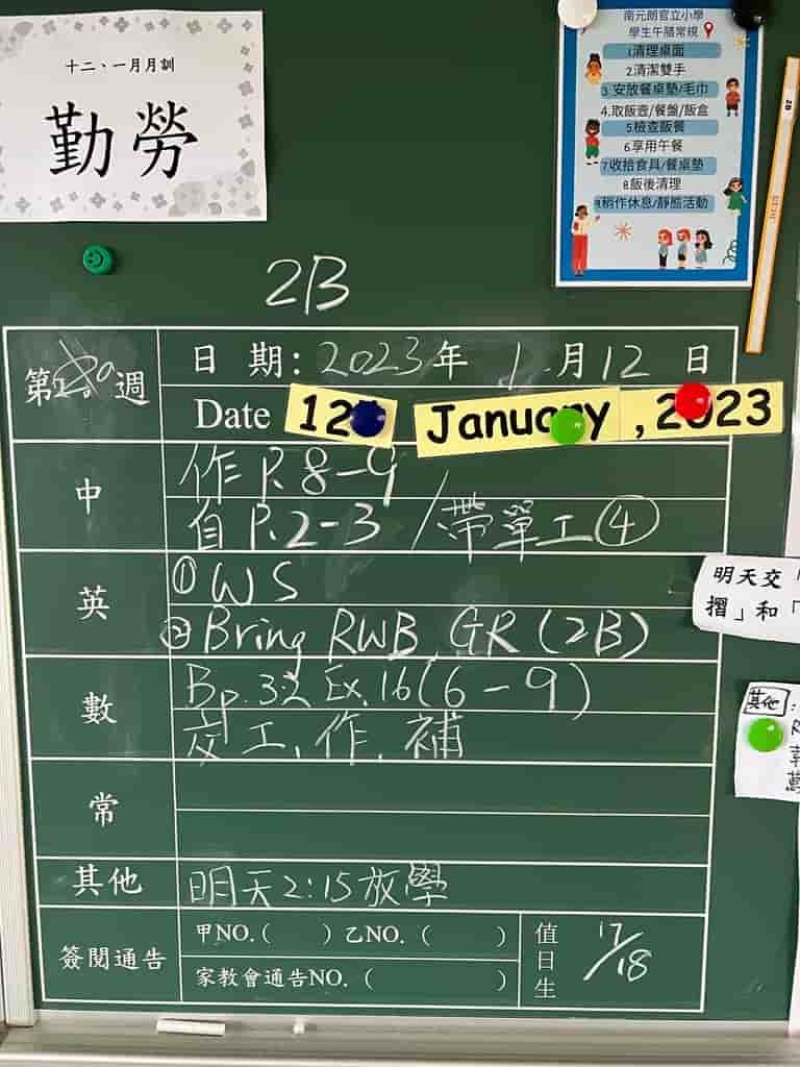 十二、一月月訓
勤勞
南元朗官立小學
學生午膳常規
1清理桌面
2.清潔雙手
3.安放餐桌墊/毛巾
4.取飯壺/餐盤/飯盒
5檢查飯餐
6.享用午餐
7收拾食具/餐桌墊
8.飯後清理
9稍作休息/靜態活動
2B
第20週
日期: 2023年 1月12日
Date 12 January, 2023
中
作 P.8-9
自 P.2-3 /帶單工④
英
① WS
② Bring RWB, GR (2B)
數
Bp.32 Ex.16(6-9)
交工、作、補
常
其他
明天2:15放學
簽閱通告
甲NO.( ) 乙NO.( )
家教會通告NO.( )
值日生
17/18
明天交「
摺」和「
其他: